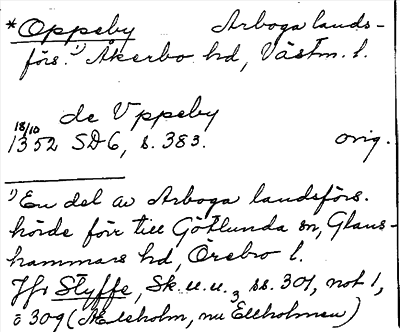 *Oppeby Arboga lands-
förs.¹) Åkerbo hd, Västm. l.
de Uppeby
18/10
1352 SD 6, s. 383. orig.
¹) En del av Arboga landsförs.
hörde förr till Götlunda sn, Glans-
hammars hd, Örebro l.
Jfr Styffe, Sk. u. u.3 ss. 301, not 1,
o 309 (Ælsholm, nu Ellholmen)